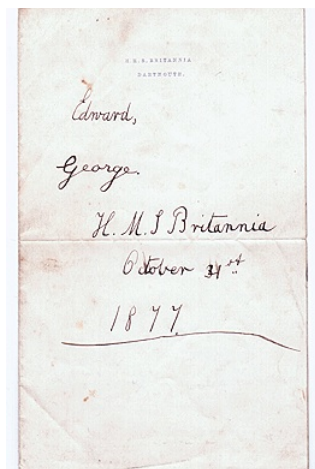 H.M.S. BRITANNIA
DARTMOUTH.
Edward,
George.
H. M. S Britannia
October 31st
1877